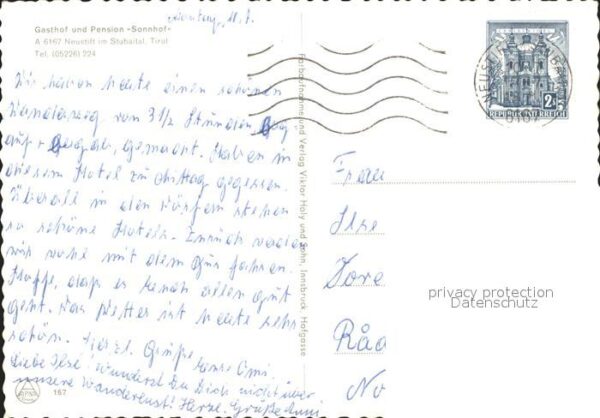 Gasthof und Pension »Sonnhof«
A 6167 Neustift im Stubaital, Tirol
Tel. (05226) 224
Wir haben heute einen schönen
Wanderweg von 3 1/2 Stunden Berg
auf + Berg ab, gemacht. Haben in
diesem Hotel zu Mittag gegessen.
Überall in den Dörfern stehen
so schöne Hotels.
wir mit dem Bus fahren.
Hoffe, daß es Euch allen gut
geht. Das Wetter ist heute sehr
schön. Herzl. Grüße Omi
Liebe Ilse! Wunderst Du Dich nicht über
unsere Wanderlust? Herzl. Grüße
167
Farbaufnahme und Verlag Viktor Holy und Sohn, Innsbruck Hofgasse
2.5
REPUBLIK ÖSTERREICH
NEUSTIFT
6167
Frau
Ilse
Dora
Råd
No
privacy protection
Datenschutz